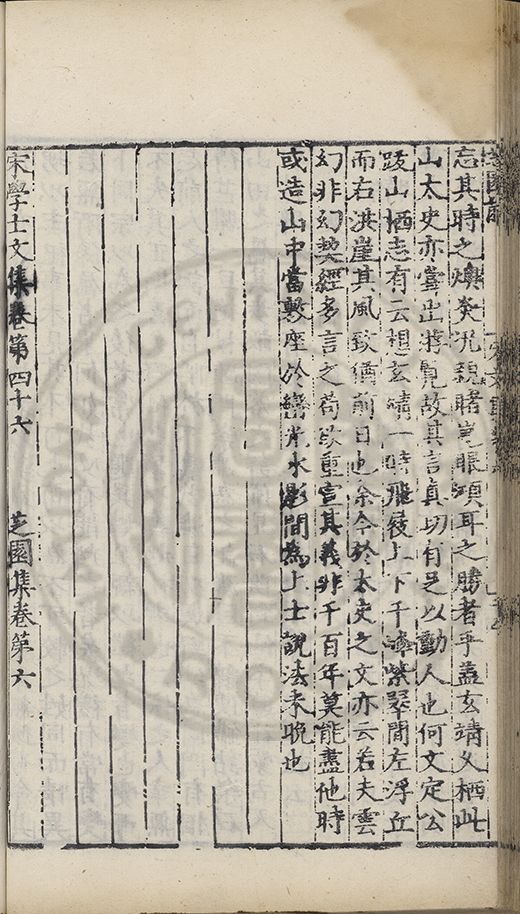 忘其時之燠癸况親睹崑眼澒耳之勝者乎蓋玄靖久栖此
山太史亦嘗出游覧故其言真切有足以動人也何文定公
跋山栖志有云想玄靖一時飛屐上下千峰紫翠間左浮丘
而右洪崖其風致猶前日也余今於太史之文亦云若夫雲
幻非幻契經多言之苟欲重宣其義非千百年莫能盡他時
或造山中當敷座於巒光水影間為上士說法未晚也
宋學士文集卷第四十六　芝園集卷第六